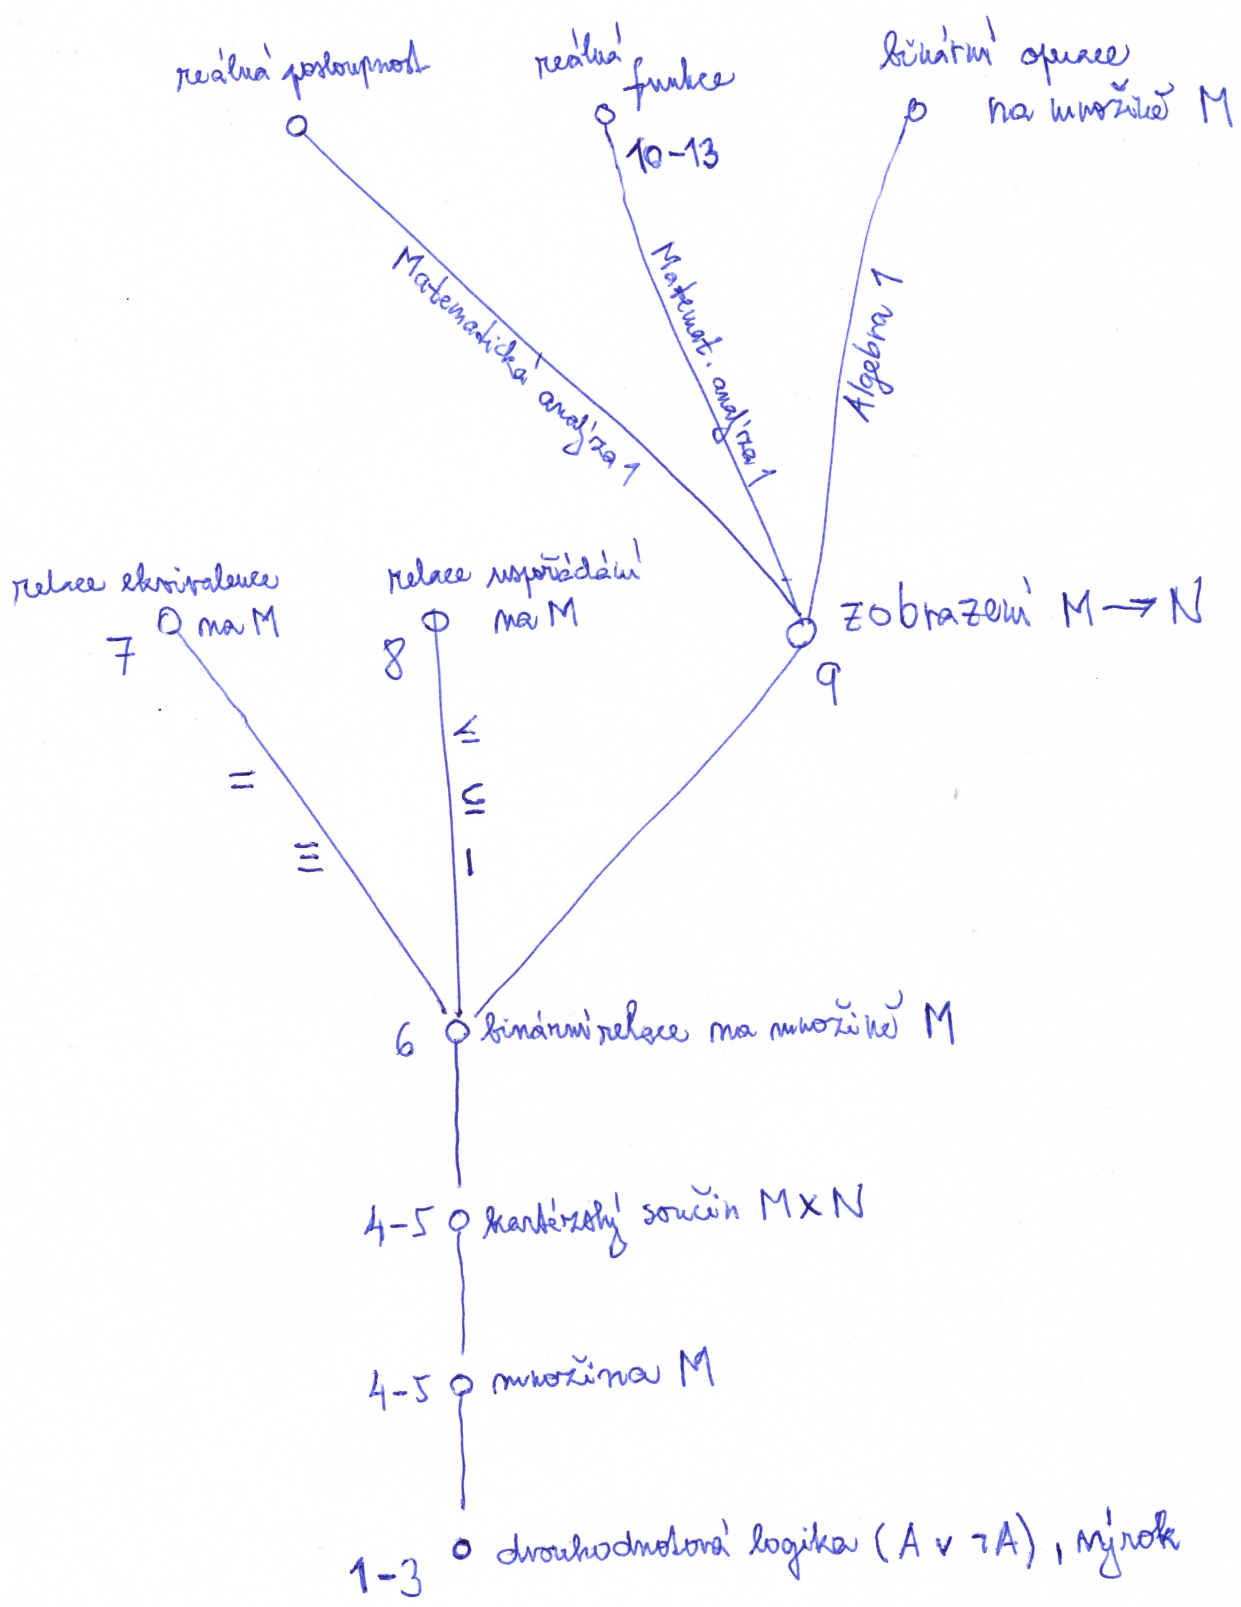 reálná posloupnost
reálná
funkce
10-13
binární operace
na množině M
Matematická analýza 1
Matemat. analýza 1
Algebra 1
relace ekvivalence
na M
7
relace uspořádání
na M
8
zobrazení M → N
9
=
≡
≤
⊆
|
6 binární relace na množině M
4-5 kartézský součin M x N
4-5 množina M
1-3 dvouhodnotová logika (A ∨ ¬A), výrok